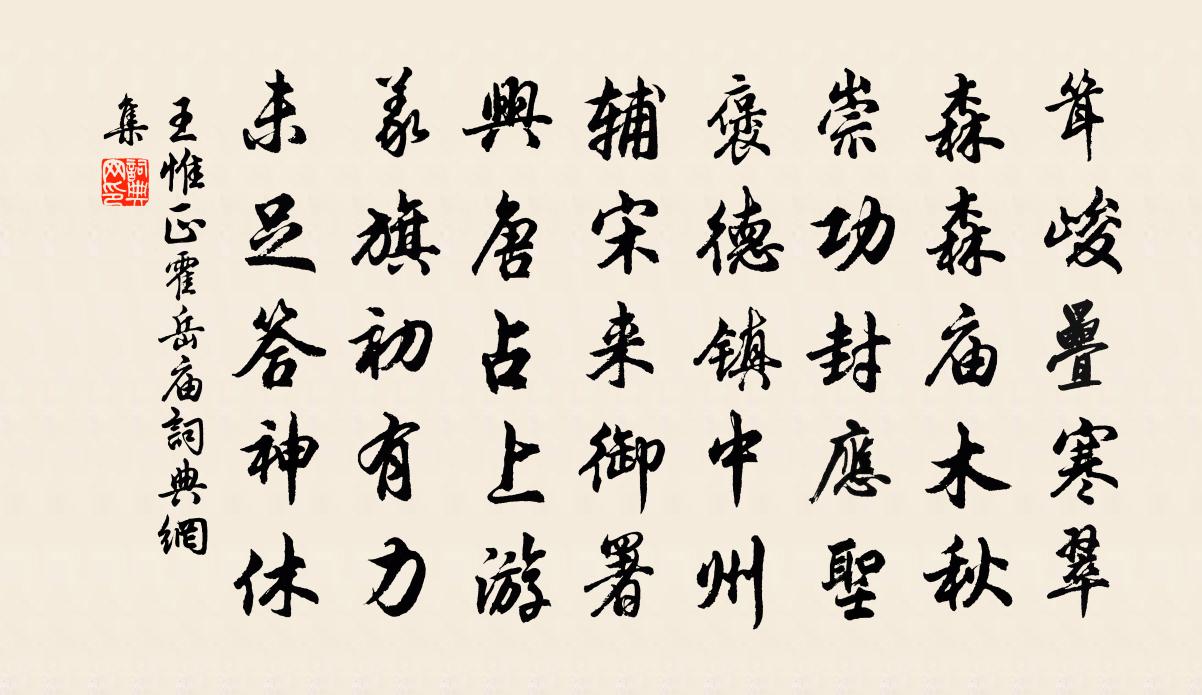 耸峻疊寒翠
森森庙木秋
崇功封應聖
褒德镇中州
辅宋来御署
興唐占上游
義旗初有力
未足答神休
王惟正霍岳庙詞典網
集
詞典
网印